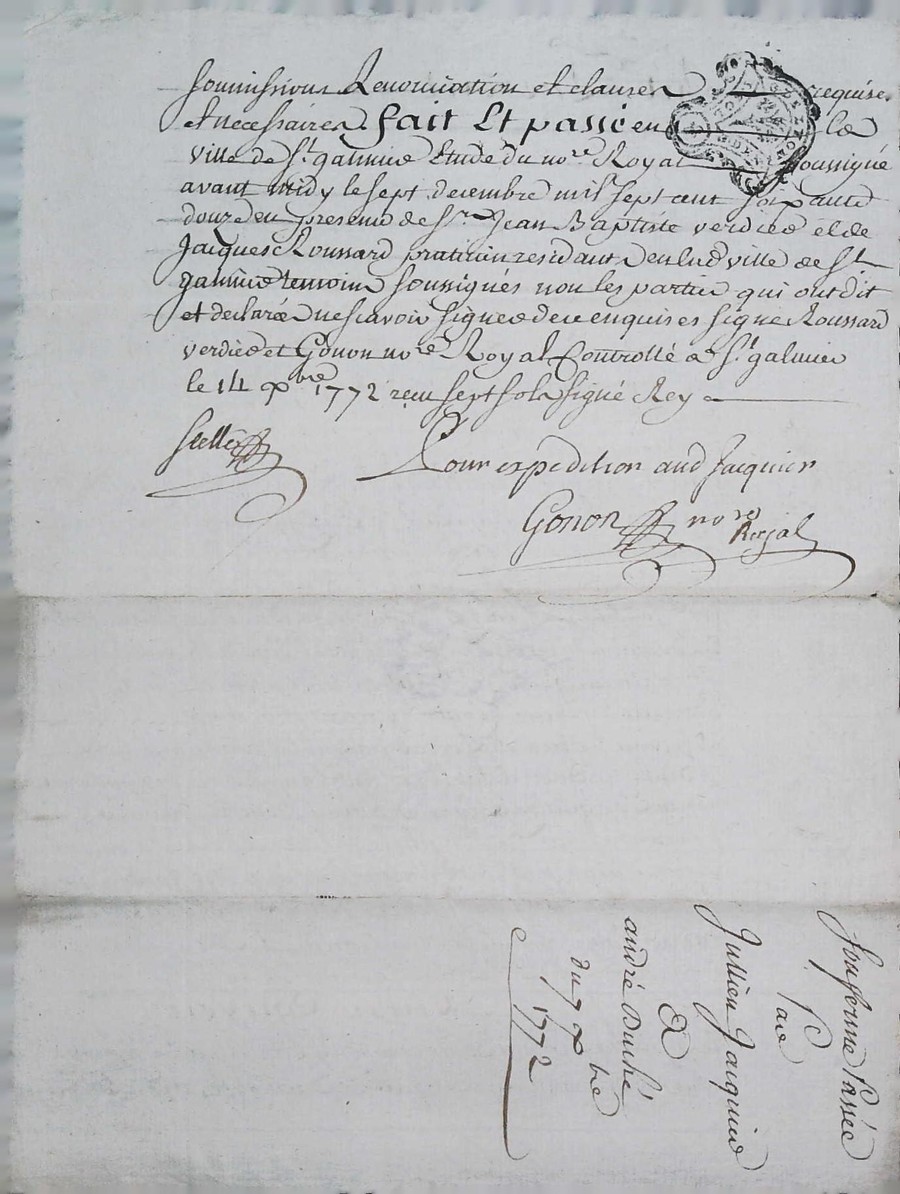 soumissions Renonciation et clauses requises
et necessaires. fait Et passé en la
ville de St galmier Etude du nore Royal soussigné
avant midy le sept decembre mil sept cent soixante
douze en presence de Sr Jean Baptiste verdier et de
Jacques Roussard praticien residants en lad ville de St
galmier temoins soussignés non les parties qui ont dit
et declarée ne scavoir signer de ce enquises signé Roussard
verdier et Gonon nore Royal Controllé a St galmier
le 14 xbre 1772 reçu sept sols signé Rey
Scellé
Pour expedition aud Jacquier
Gonon nore
Royal
Sousferme Passée
Par
Jullien Jacquier
A
andré Duché
du 7 xbre
1772